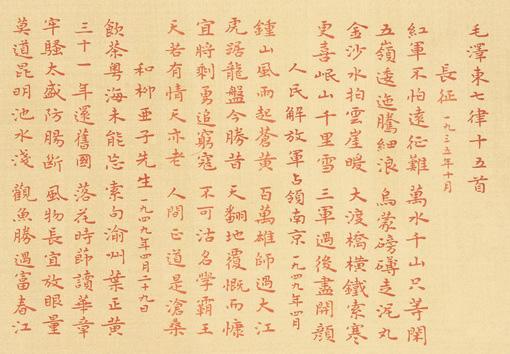 毛澤東七律十五首
長征 一九三五年十月
紅軍不怕遠征難 萬水千山只等閑
五嶺逶迤騰細浪 烏蒙磅礴走泥丸
金沙水拍雲崖暖 大渡橋橫鐵索寒
更喜岷山千里雪 三軍過後盡開顏
人民解放軍占領南京 一九四九年四月
鍾山風雨起蒼黃 百萬雄師過大江
虎踞龍盤今勝昔 天翻地覆慨而慷
宜將剩勇追窮寇 不可沽名學霸王
天若有情天亦老 人間正道是滄桑
和柳亞子先生 一九四九年四月二十九日
飲茶粵海未能忘 索句渝州葉正黃
三十一年還舊國 落花時節讀華章
牢騷太盛防腸斷 風物長宜放眼量
莫道昆明池水淺 觀魚勝過富春江